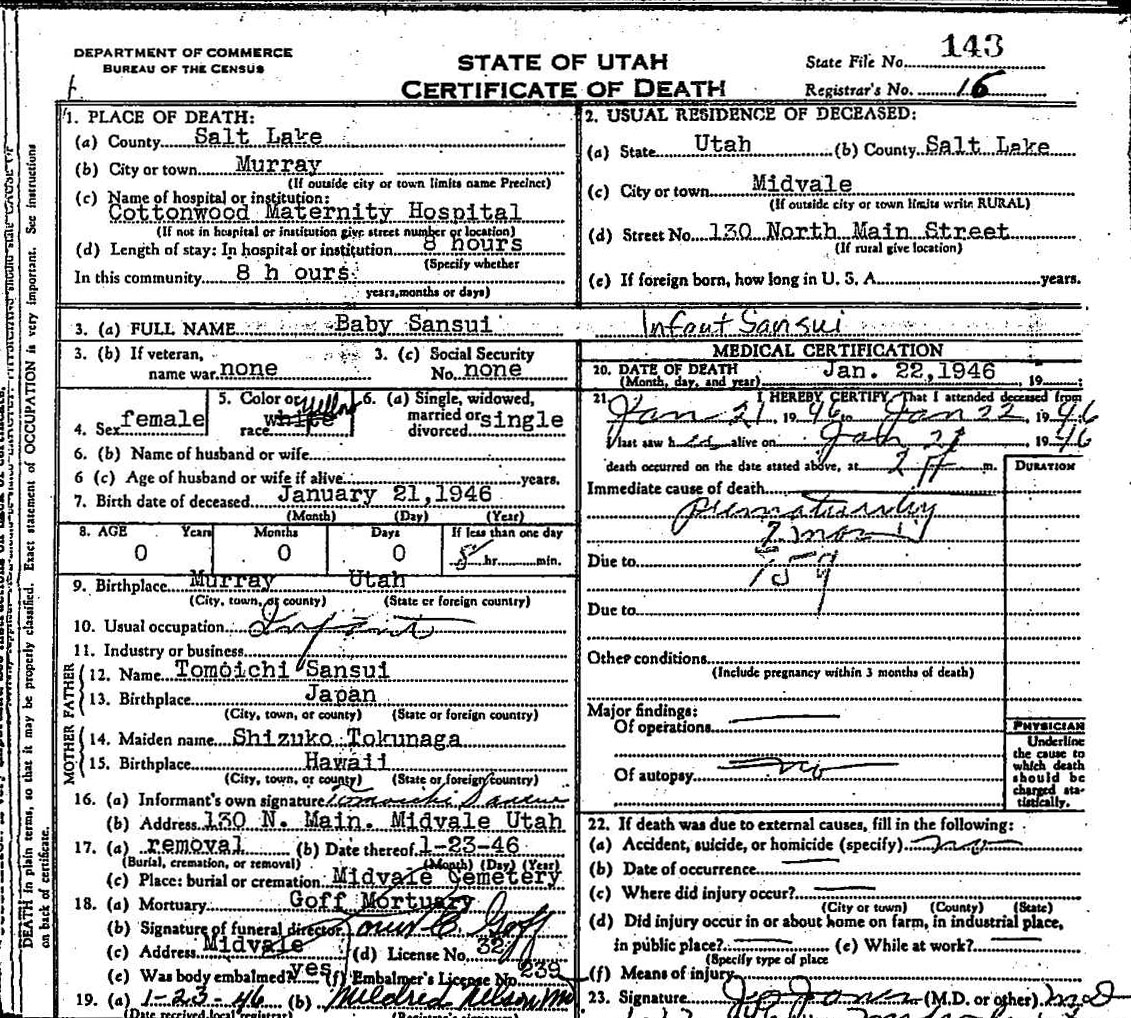 DEPARTMENT OF COMMERCE
BUREAU OF THE CENSUS
STATE OF UTAH
CERTIFICATE OF DEATH
State File No. 143
Registrar's No. 16
1. PLACE OF DEATH:
(a) County Salt Lake
(b) City or town Murray
(If outside city or town limits name Precinct)
(c) Name of hospital or institution:
Cottonwood Maternity Hospital
(If not in hospital or institution give street number or location)
(d) Length of stay: In hospital or institution 8 hours
(Specify whether
In this community 8 h ours
years, months or days)
2. USUAL RESIDENCE OF DECEASED:
(a) State Utah (b) County Salt Lake
(c) City or town Midvale
(If outside city or town limits write RURAL)
(d) Street No. 130 North Main Street
(If rural give location)
(e) If foreign born, how long in U. S. A. years.
3. (a) FULL NAME Baby Sansui Infant Sansui
3. (b) If veteran,
name war none
3. (c) Social Security
No. none
4. Sex female
5. Color or
race white yellow
6. (a) Single, widowed,
married or
divorced single
6. (b) Name of husband or wife
6 (c) Age of husband or wife if alive years.
7. Birth date of deceased January 21,1946
(Month) (Day) (Year)
8. AGE Years Months Days If less than one day
0 0 0 8 hr. min.
9. Birthplace Murray Utah
(City, town, or county) (State or foreign country)
10. Usual occupation Infant
11. Industry or business
FATHER
12. Name Tomoichi Sansui
13. Birthplace Japan
(City, town, or county) (State or foreign country)
MOTHER
14. Maiden name Shizuko Tokunaga
15. Birthplace Hawaii
(City, town, or county) (State or foreign country)
16. (a) Informant's own signature Tomoichi Sansui
(b) Address 130 N. Main. Midvale Utah
17. (a) removal (b) Date thereof 1-23-46
(Burial, cremation, or removal) (Month) (Day) (Year)
(c) Place: burial or cremation Midvale Cemetery
18. (a) Mortuary Goff Mortuary
(b) Signature of funeral director Goff
(c) Address Midvale (d) License No. 32
(e) Was body embalmed yes (f) Embalmer's License No. 239
19. (a) 1-23-46 (b) Mildred Nelson
(Date received local registrar)
MEDICAL CERTIFICATION
20. DATE OF DEATH Jan. 22,1946 , 19 ;
(Month, day, and year)
21. I HEREBY CERTIFY, That I attended deceased from
Jan 21 1946 to Jan 22, 1946
I last saw h alive on Jan 21 1946
death occurred on the date stated above, at 2 A m.
DURATION
Immediate cause of death
Prematurity
7 mon
Due to
159
Due to
Other conditions
(Include pregnancy within 3 months of death)
Major findings:
Of operations
Of autopsy no
PHYSICIAN
Underline
the cause to
which death
should be
charged sta-
tistically.
22. If death was due to external causes, fill in the following:
(a) Accident, suicide, or homicide (specify) no
(b) Date of occurrence
(c) Where did injury occur?
(City or town) (County) (State)
(d) Did injury occur in or about home on farm, in industrial place,
in public place? (e) While at work?
(Specify type of place
(f) Means of injury
23. Signature Jones (M.D. or other) MD
DEATH in plain terms, so that it may be properly classified. Exact statement of OCCUPATION is very important. See instructions
on back of certificate.